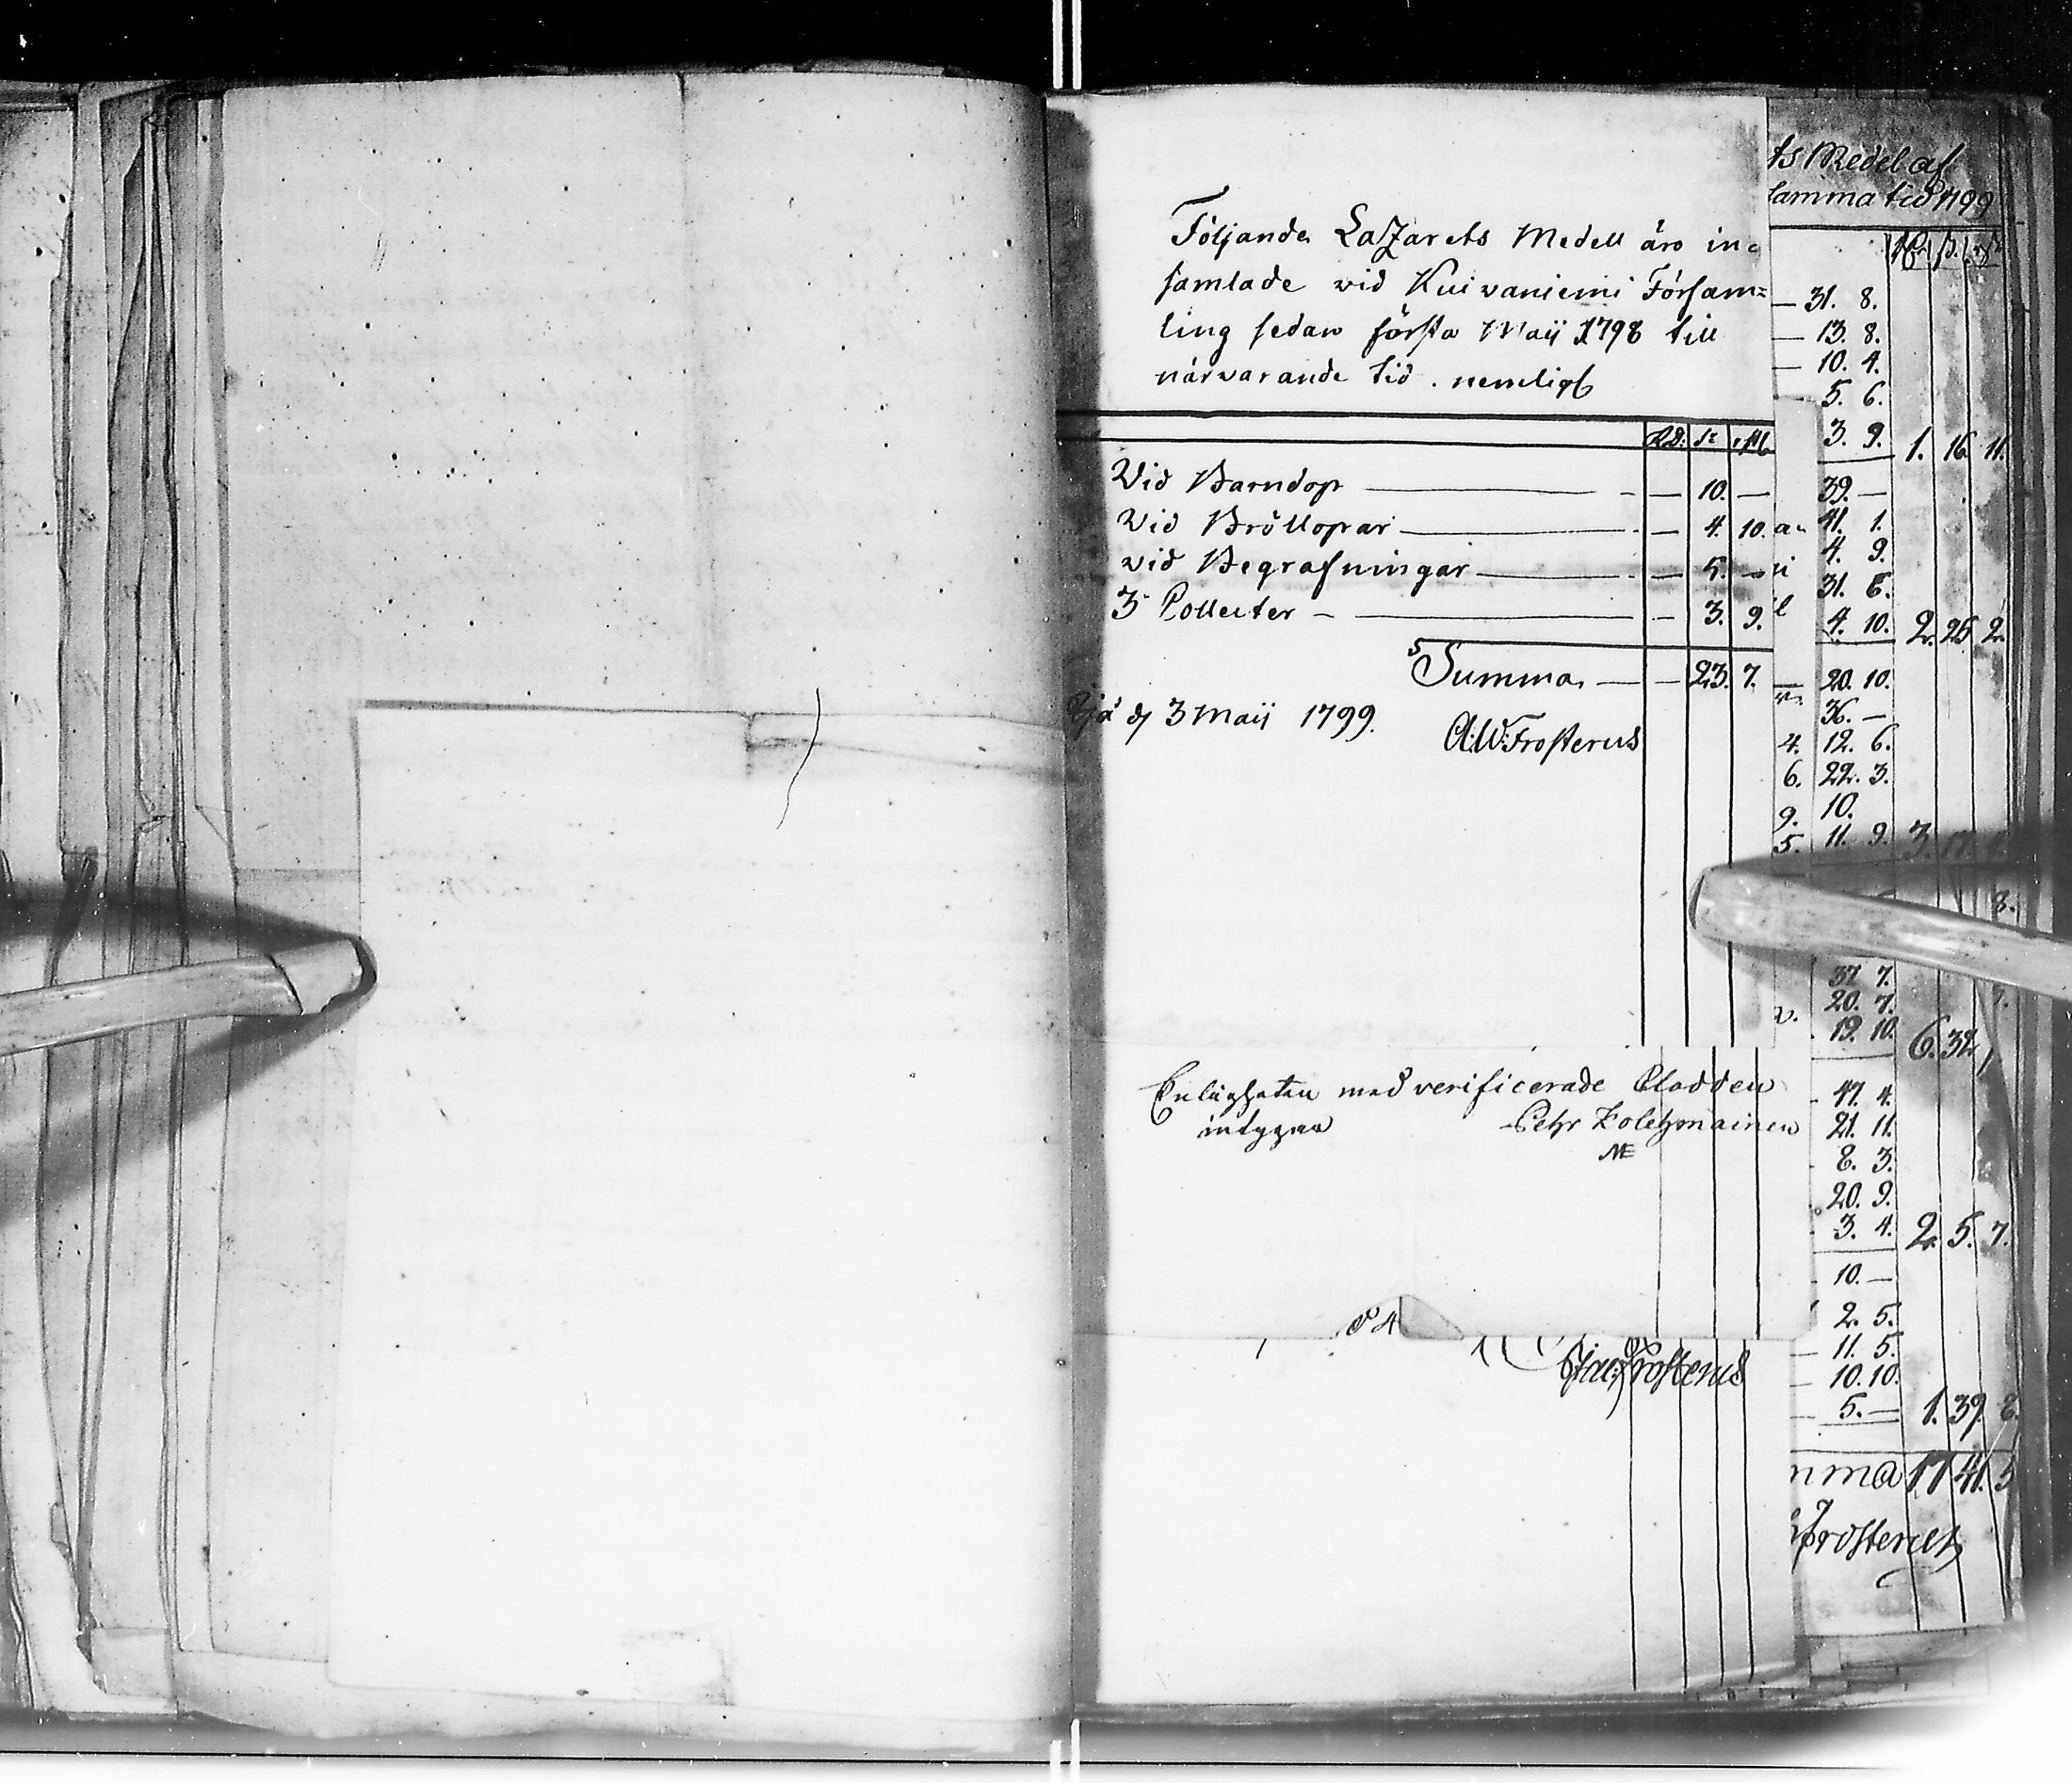 Följande Lazarets Medell äro in=
samlade vid Kuivaniemi Försam=
ling sedan första Maij 1798 till
närvarande tid. nemligt
RD: s: rst
Vid Barndop — — 10. —
Vid Bröllopar — — 4. 10.
vid Begrafningar — — 5. —
3 Collecter — — 3. 9.
Summa — — 23. 7.
Ijå d 3 Maij 1799.
A:W:Frosterus
Enligheten med verificerade Cladden
intygar Pehr Kolehmainen
NE
Frosterus
ts Medel af
samma tid 1799
— 31. 8.
— 13. 8.
— 10. 4.
5. 6.
3. 9. 1. 16. 11.
39. —
41. 1.
4. 9.
31. 6.
4. 10. 2. 25. 2.
— 20. 10.
36. —
4. 12. 6.
6. 22. 3.
9. 10.
5. 11. 9. 3. 17.
8.
37. 7.
20. 7.
19. 10. 6. 32.
47. 4.
21. 11.
8. 3.
20. 9.
3. 4. 2. 5. 7.
10. —
2. 5.
— 11. 5.
— 10. 10.
— 5. — 1. 39. 8.
mma 17 41. 5
Frosterus